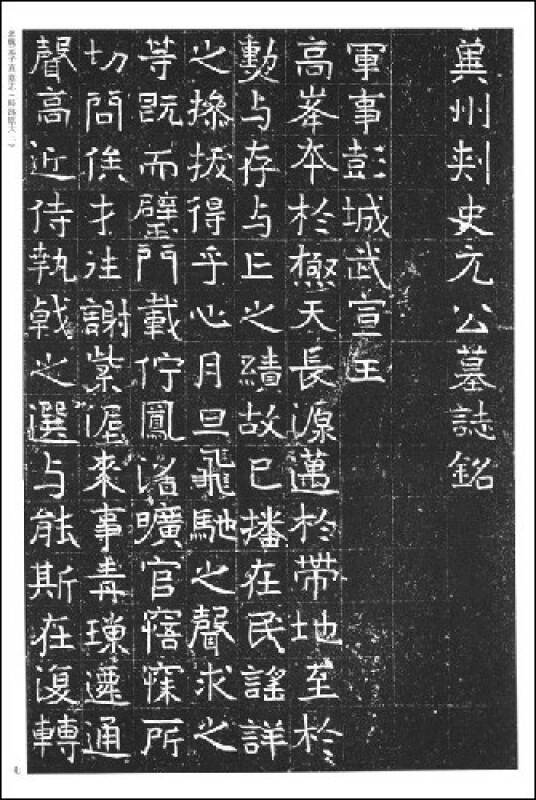 冀州刺史元公墓誌銘
軍事彭城武宣王
高峯夲於極天長源邁於帶地至於
勳与存与亡之績故已播在民謡詳
之㨿拔得乎心月旦飛馳之聲求之
等既而璧門載佇鳳沼曠官寤寐所
切問俟才往謝紫渥來事青璅遷通
聲高近侍執戟之選与能斯在復轉